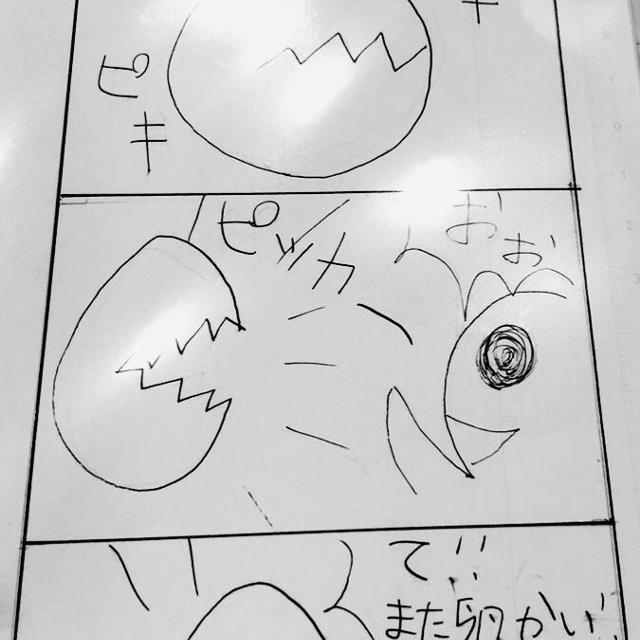 ピキ
ピッカ
おお
て!!
また卵かい!